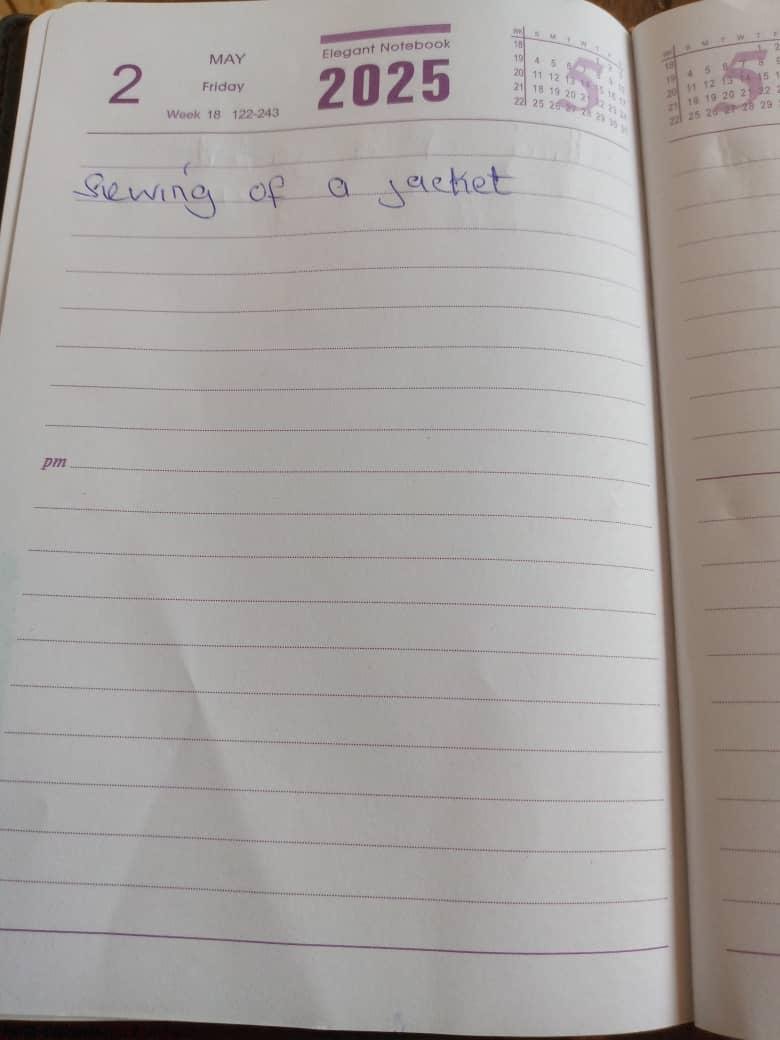 2
MAY
Friday
Week 18 122-243
Elegant Notebook
2025
WK S M T W T F
18
19 4 5 6
20 11 12 13
21 18 19 20 21
22 25 26 27 28 29 30 31
5
Sewing of a jacket
pm
18
19 4 5 6 7 8
20 11 12 13 14 15
21 18 19 20 21 22
22 25 26 27 28 29
5